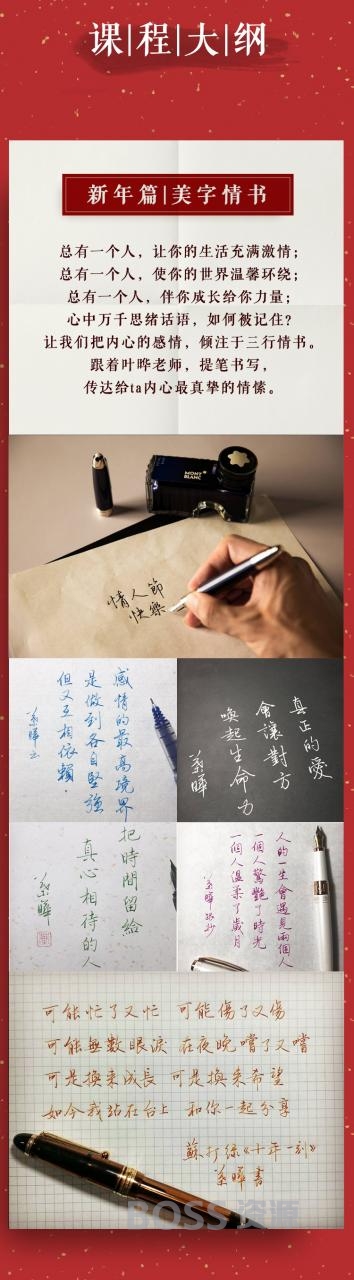 课|程|大|纲
新年篇|美字情书
总有一个人，让你的生活充满激情；
总有一个人，使你的世界温馨环绕；
总有一个人，伴你成长给你力量；
心中万千思绪话语，如何被记住？
让我们把内心的感情，倾注于三行情书。
跟着叶晔老师，提笔书写，
传达给ta内心最真挚的情愫。
MONT
BLANC
情人節
快樂
感情的最高境界
是做到各自堅強
但又互相依賴．
葉曄云
真正的愛
會讓對方
喚起生命力
葉曄
把時間留給
真心相待的人
葉曄
人的一生會遇見兩個人
一個人驚艷了時光
一個人溫柔了歲月
葉曄
可能忙了又忙 可能傷了又傷
可能無數眼淚 在夜晚嚐了又嚐
可是換來成長 可是換來希望
如今我站在台上 和你一起分享
蘇打綠《十年一刻》
葉曄書
BOSS资源